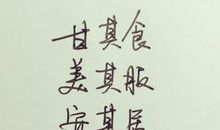 甘其食
美其服
安其居